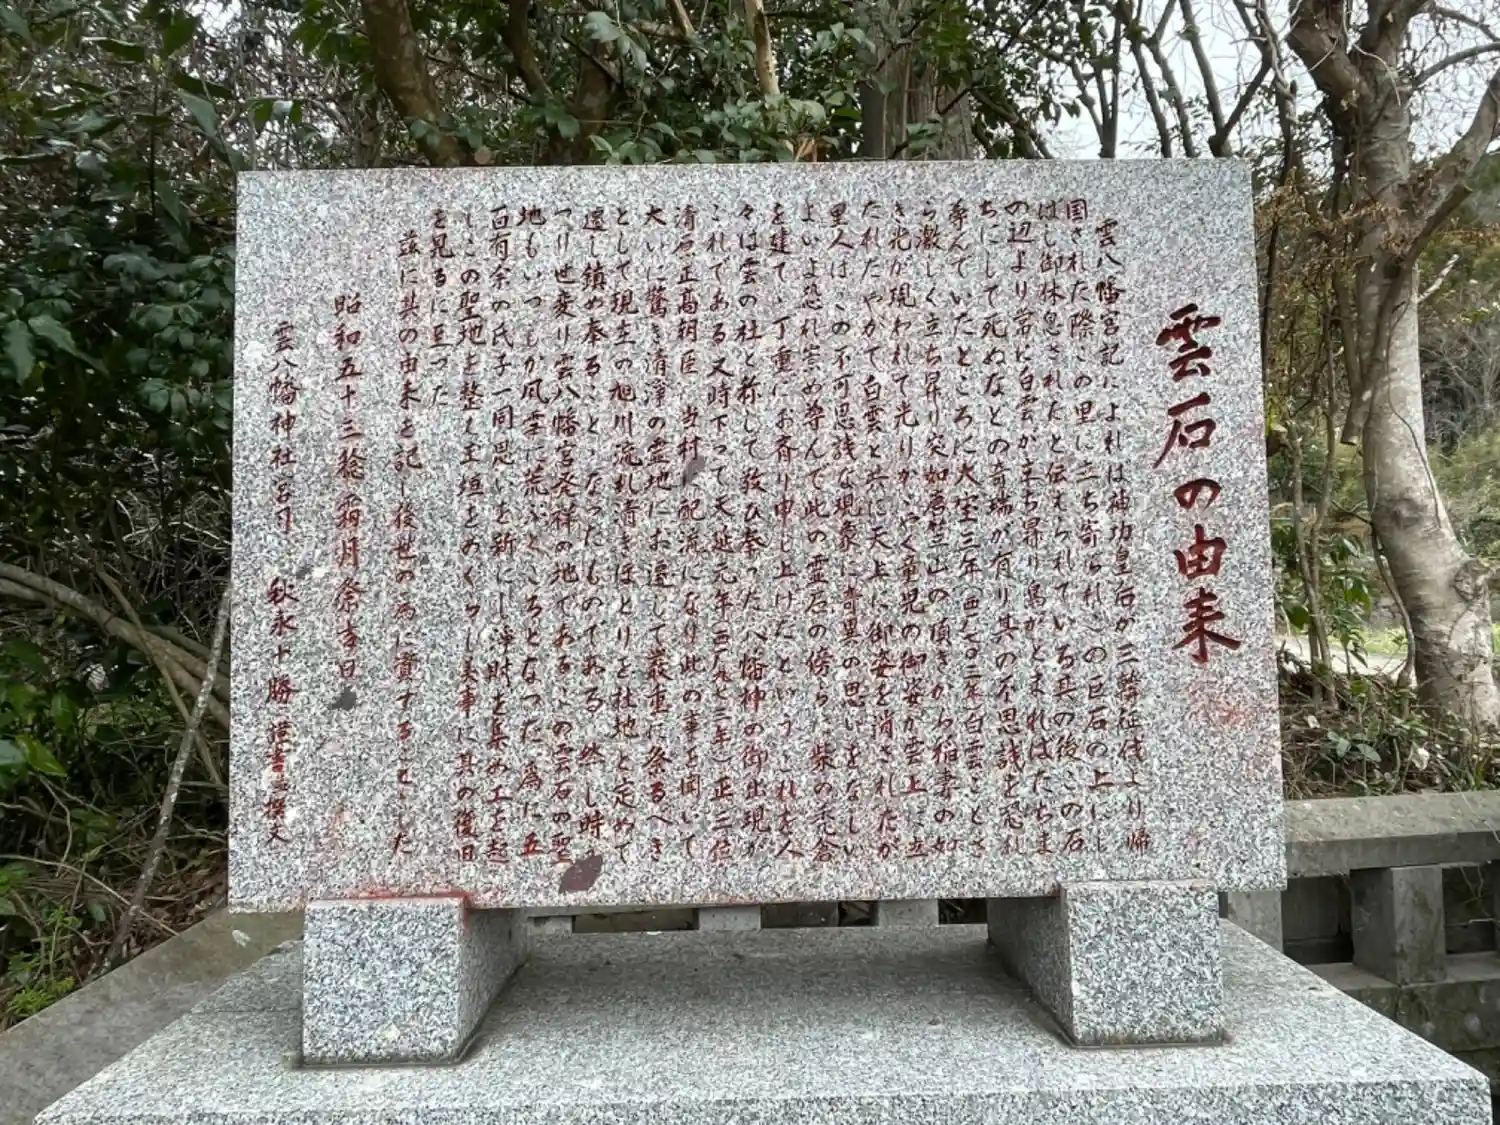 雲石の由来
雲八幡宮記によれば神功皇后が三韓征伐より帰
国された際この里に立ち寄られ、この巨石の上にし
ばし御休息されたと伝えられている其の後この石
の辺より常に白雲が立ち昇り鳥がとまればたちま
ちにして死ぬなどの奇瑞が有り其の不思議を恐れ
尊んでいたところに大宝三年(西七〇三年)白雲ことさ
ら激しく立ち昇り突如唐笠山の頂きから稲妻の如
き光が現われて光りかゞやく童児の御姿が雲上に立
たれたやがて白雲と共に天上に御姿を消されたが
里人はこの不可思議な現象に奇異の思いをなしい
よいよ恐れ崇め尊んで此の霊石の傍らに柴の禿倉
を建て、丁重にお斉り申し上げたというこれを人
々は雲の社と称して敬ひ奉った八幡神の御出現が
これである又時下って天延元年(西九七三年)正三位
清原正高朝臣、当村に配流になり此の事を聞いて
大いに驚き清浄の霊地にお遷しして厳重に祭るべき
として現在の旭川流れ清きほとりを社地と定めて
遷し鎮め奉ること、なったものである 然し時
つり世変り雲八幡宮発祥の地であるこの雲石の聖
地もいつしか風雪に荒ぶところとなった為に五
百有余の氏子一同思いを新にし浄財を集め工を起
しこの聖地を整え玉垣をめぐらし美事に其の復旧
を見るに至った
茲に其の由来を記し後世の為に資するとした
昭和五十三稔霜月祭吉日
雲八幡神社宮司 秋永十勝 謹書撰文